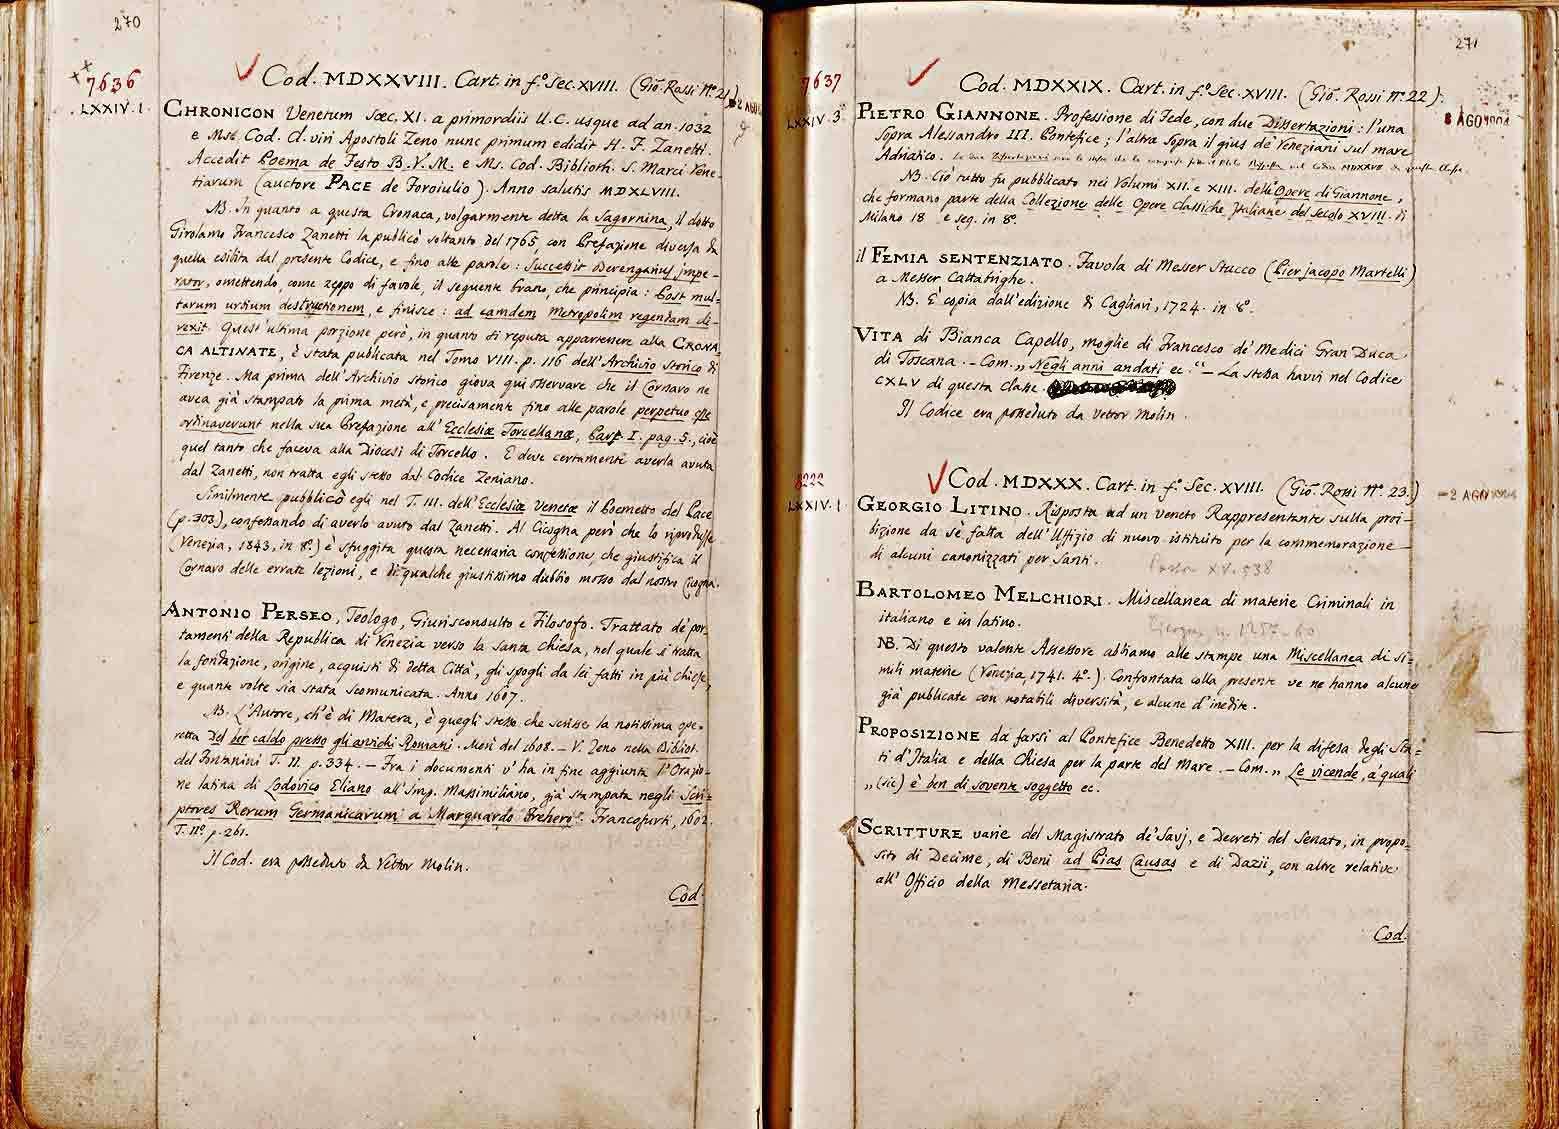 270
7636
LXXIV.1.
Cod. MDXXVIII. Cart. in f.º Sec. XVIII. (Gio. Rossi Nº. 21)
2 AGO
CHRONICON Venetum Sæc. XI. a primordiis U.C. usque ad an. 1032
e Msto. Cod. Cl. viri Apostoli Zeno nunc primum edidit H. F. Zanetti.
Accedit Poema de Festo B.V.M. e Ms. Cod. Biblioth. S. Marci Vene-
tiarum (auctore PACE de Foroiulio). Anno salutis MDXLVIII.
NB. In quanto a questa Cronaca, volgarmente detta la Sagornina, il dotto
Girolamo Francesco Zanetti la publicò soltanto del 1765, con Prefazione diversa da
quella esibita dal presente Codice, e fino alle parole: Successit Berengarius impe-
rator, omettendo, come zeppo di favole, il seguente brano, che principia: Post mul-
tarum urbium destructionem, e finisce: ad eamdem Metropolim regendam di-
rexit. Quest'ultima porzione però, in quanto si reputa appartenere alla CRONA-
CA ALTINATE, è stata publicata nel Tomo VIII. p. 116 dell'Archivio storico di
Firenze. Ma prima dell'Archivio storico giova qui osservare che il Cornaro ne
avea già stampato la prima metà, e precisamente fino alle parole perpetuo esse
ordinaverunt nella sua Prefazione all'Ecclesiæ Torcellanæ, Part. I. pag. 5., cioè
quel tanto che faceva alla Diocesi di Torcello. E deve certamente averla avuta
dal Zanetti, non tratta egli stesso dal Codice Zeniano.
Similmente pubblicò egli nel T. III. dell'Ecclesiæ Venetæ il Poemetto del Pace
(p. 303), confessando di averlo avuto dal Zanetti. Al Cicogna però che lo riprodusse
(Venezia, 1843, in 8º.) è sfuggita questa necessaria confessione, che giustifica il
Cornaro delle errate lezioni, e di qualche giustissimo dubbio mosso dal nostro Cicogna.
ANTONIO PERSEO, Teologo, Giurisconsulto e Filosofo. Trattato de' por-
tamenti della Republica di Venezia verso la santa Chiesa, nel quale si tratta
la fondazione, origine, acquisti di detta Città, gli spogli da lei fatti in più chiese,
e quante volte sia stata scomunicata. Anno 1607.
NB. L'Autore, ch'è di Matera, è quegli stesso che scrisse la notissima ope-
retta Del ber caldo presso gli antichi Romani. Morì del 1608. – V. Zeno nella Bibliot.
del Fontanini T. II. p. 334. – Fra i documenti v'ha in fine aggiunta l'Orazio-
ne latina di Lodovico Eliano all'Imp. Massimiliano, già stampata negli Scri-
ptores Rerum Germanicarum a Marquardo Frehero. Francofurti, 1602.
T. IIº. p. 261.
Il Cod. era posseduto da Vettor Molin.
Cod.
271
7637
LXXIV.3.
Cod. MDXXIX. Cart. in f.º Sec. XVIII. (Gio. Rossi Nº. 22).
8 AGO 1904
PIETRO GIANNONE. Professione di Fede, con due Dissertazioni: l'una
sopra Alessandro III. Pontefice; l'altra sopra il gius de' Veneziani sul mare
Adriatico.
NB. Ciò tutto fu pubblicato nei Volumi XII. e XIII. dell'Opere di Giannone,
che formano parte della Collezione delle Opere classiche Italiane del secolo XVIII. di
Milano 18 e seg. in 8º.
il FEMIA SENTENZIATO. Favola di Messer Stucco (Pier jacopo Martelli)
a Messer Cattabrighe.
NB. È copia dall'edizione di Cagliari, 1724. in 8º.
VITA di Bianca Capello, moglie di Francesco de' Medici Gran Duca
di Toscana. – Com. „Negli anni andati ec.“ – La stessa havvi nel Codice
CXLV di questa classe.
Il Codice era posseduto da Vettor Molin.
8222
LXXIV.1
Cod. MDXXX. Cart. in f.º Sec. XVIII. (Gio. Rossi Nº. 23.)
2 AGO 1904
GEORGIO LITINO. Risposta ad un veneto Rappresentante sulla proi-
bizione da sè fatta dell'Uffizio di nuovo istituito per la commemorazione
di alcuni canonizzati per Santi.
XV. 538
BARTOLOMEO MELCHIORI. Miscellanea di materie Criminali in
italiano e in latino.
Cicogna n. 1257-60
NB. Di questo valente Assessore abbiamo alle stampe una Miscellanea di si-
mili materie (Venezia, 1741. 4º.). Confrontata colla presente ve ne hanno alcune
già publicate con notabili diversità, e alcune d'inedite.
PROPOSIZIONE da farsi al Pontefice Benedetto XIII. per la difesa degli Sta-
ti d'Italia e della Chiesa per la parte del Mare. – Com. „Le vicende, a' quali
„(sic) è ben di sovente soggetto ec.
SCRITTURE varie del Magistrato de' Savj, e Decreti del Senato, in propo-
sito di Decime, di Beni ad Pias Causas e di Dazii, con altre relative
all' Officio della Messetaria.
Cod.